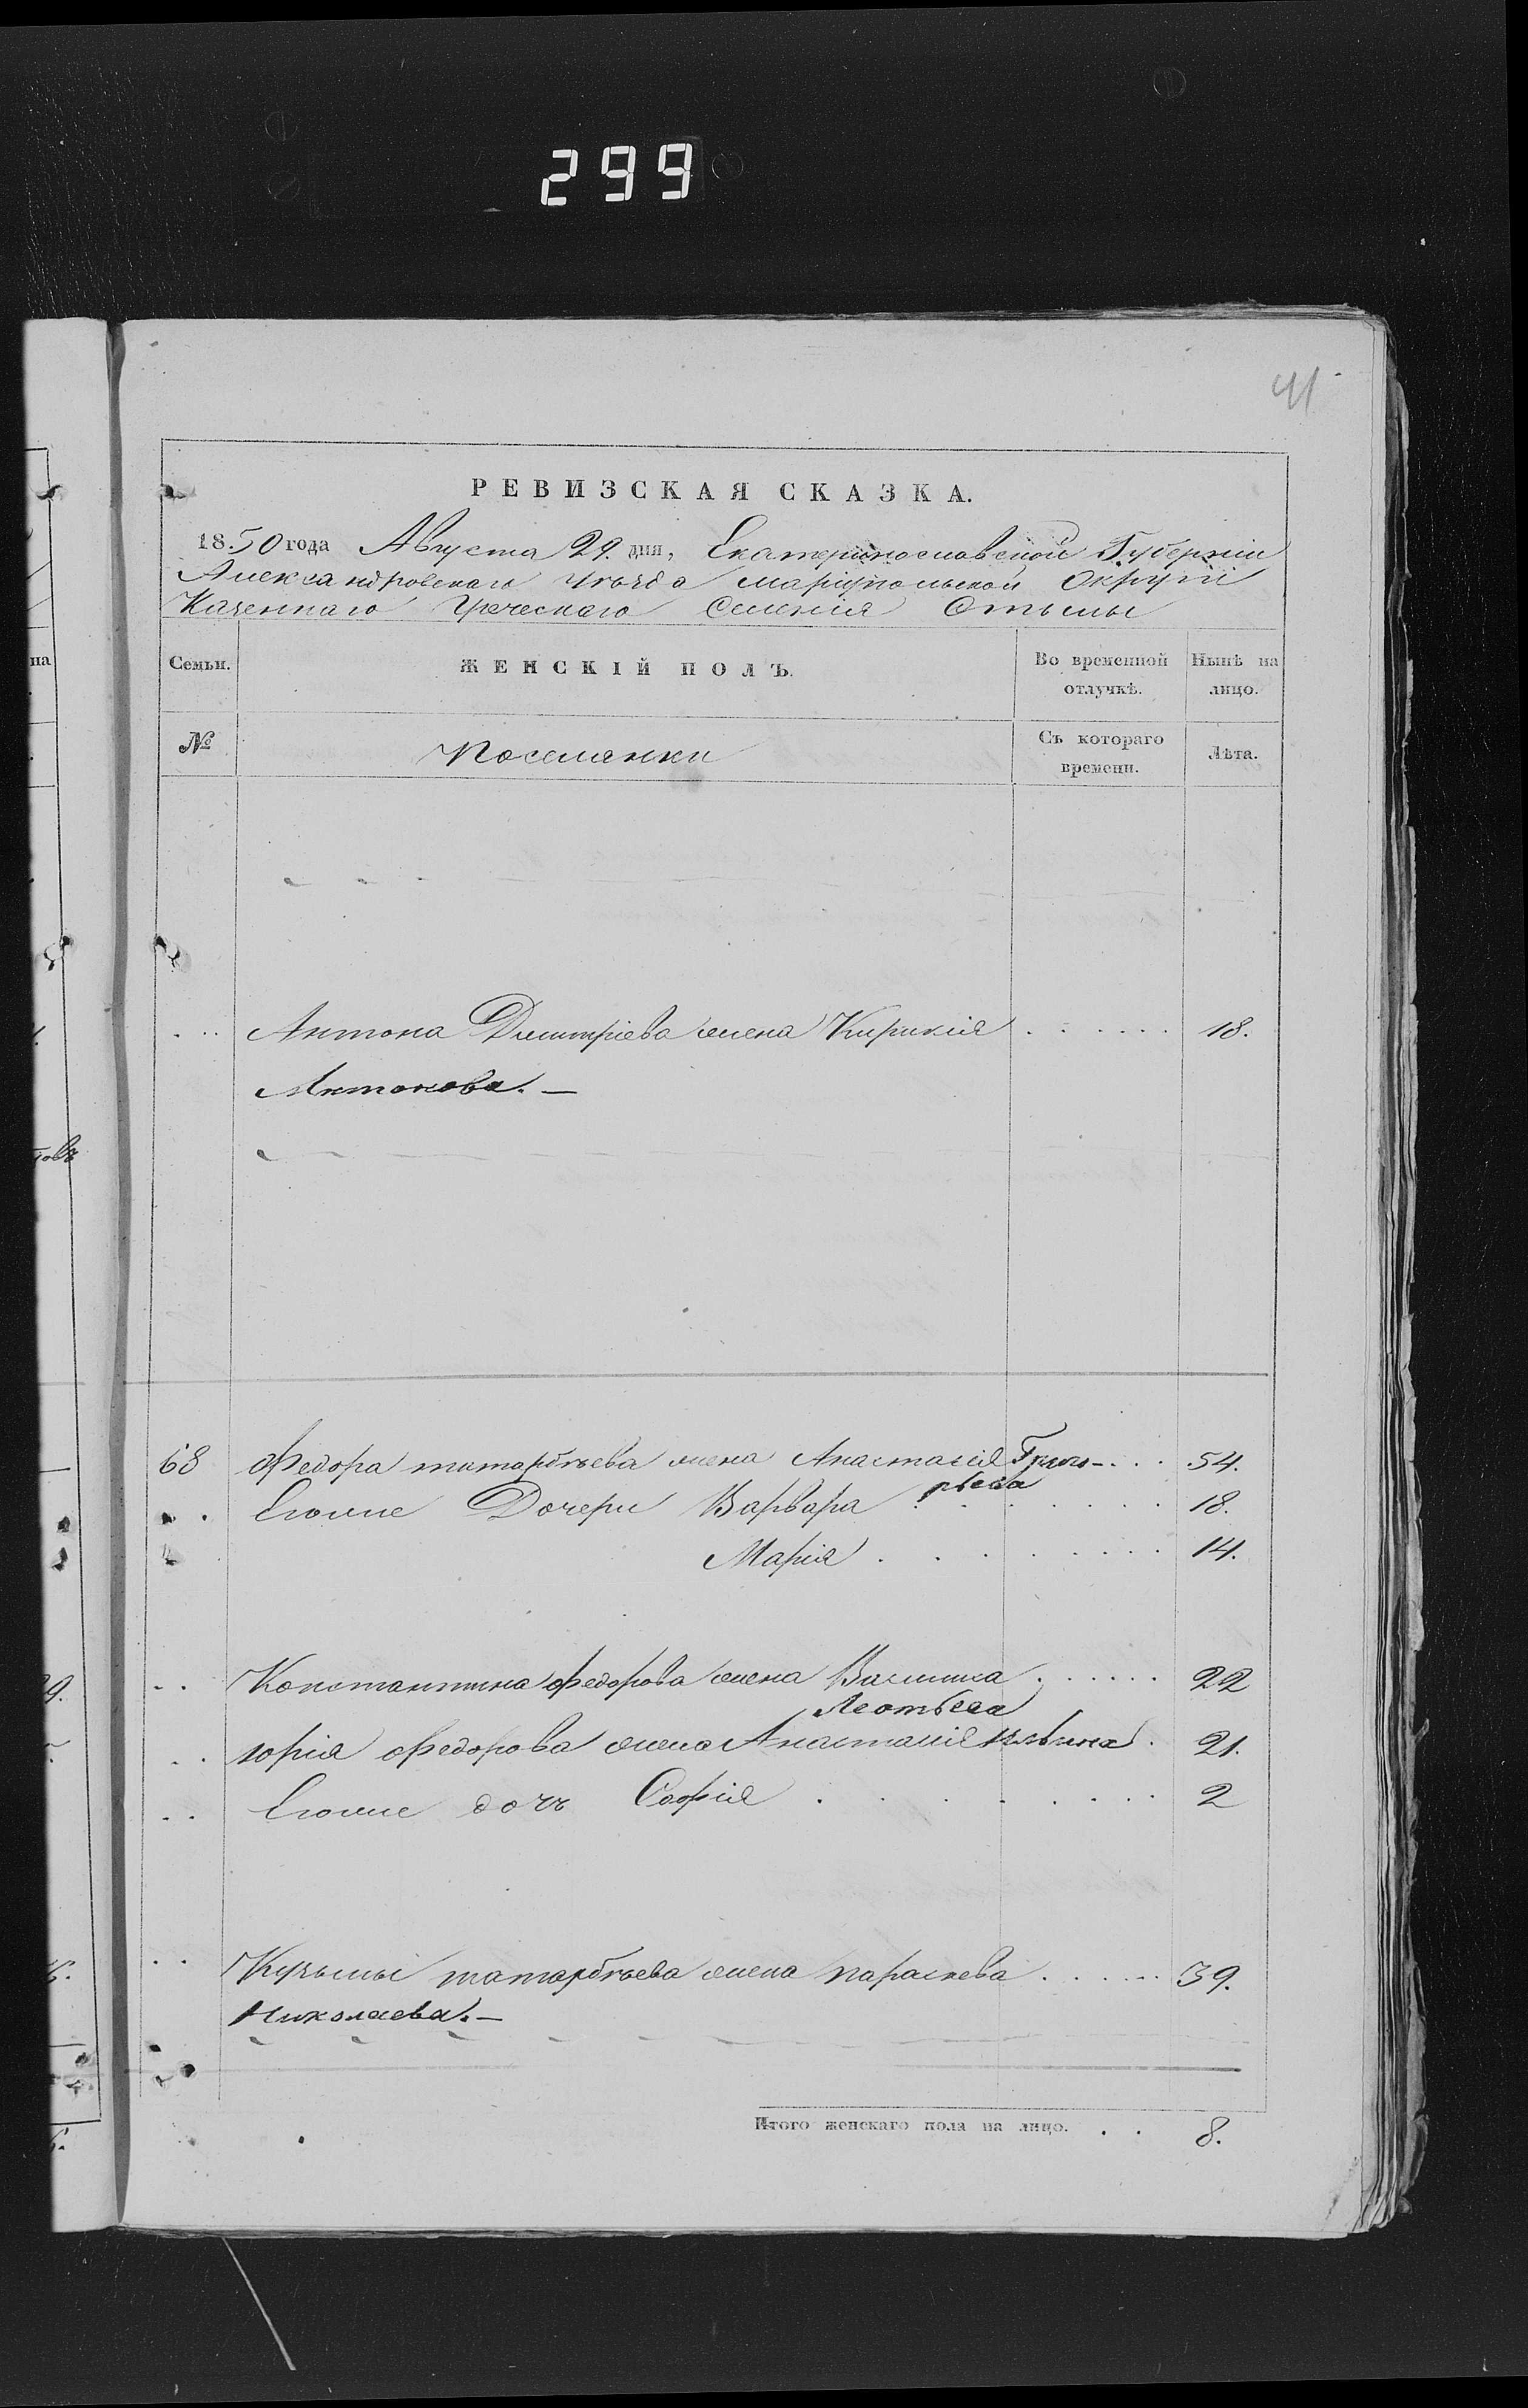 299
41
РЕВИЗСКАЯ СКАЗКА.
18.50 года Августа 29. дня, Екатеринославской Губерніи
Александровскаго уѣзда Маріупольской Округи
Казеннаго Греческаго Селенія
Семьи. ЖЕНСКІЙ ПОЛЪ. Во временной отлучкѣ. Нынѣ на лицо.
№ Поселянки Съ котораго времени. Лѣта.
Антона Дмитріева жена Кирикія . . . . . . 18.
Антонова. —
68 Федора жена Анастасія Григо- . . . 54.
рьева
Егоже Дочери Варвара . . . . . . 18.
Марія . . . . . . . 14.
Константина Федорова жена Василиса . . . . . . 22
Леотьева
Федорова жена Анастасія Ильина . 21.
Егоже дочь Софія . . . . . . . 2
Кузьмы жена параскева . . . . . . 39.
Николаева. —
Итого женскаго пола на лицо. . . 8.
на
товъ
9.